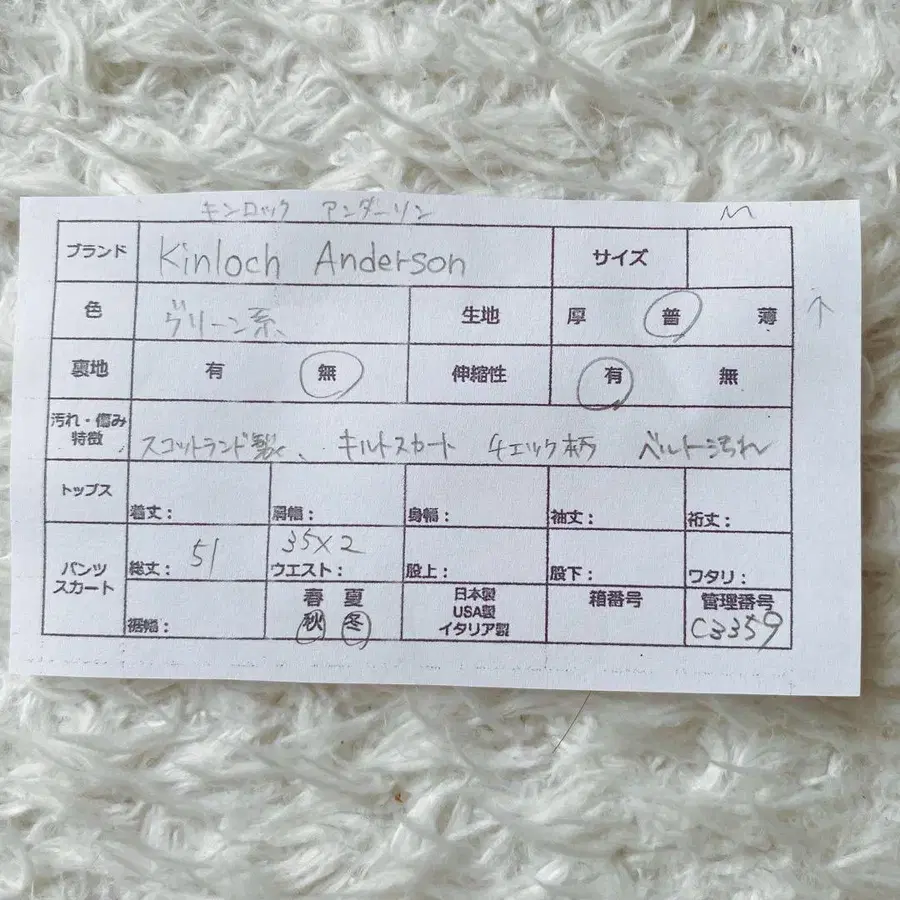 キンロック アンダーソン M
ブランド Kinloch Anderson サイズ
色 グリーン系、 生地 厚 普 薄 ↑
裏地 有 無 伸縮性 有 無
汚れ・傷み
特徴 スコットランド製、 キルトスカート チェック柄 ベルト汚れ
トップス 着丈： 肩幅： 身幅： 袖丈： 裄丈：
パンツ
スカート 総丈： 51 ウエスト： 35×2 股上： 股下： ワタリ：
裾幅： 春 夏
秋 冬
日本製
USA製
イタリア製
箱番号 管理番号
C3359